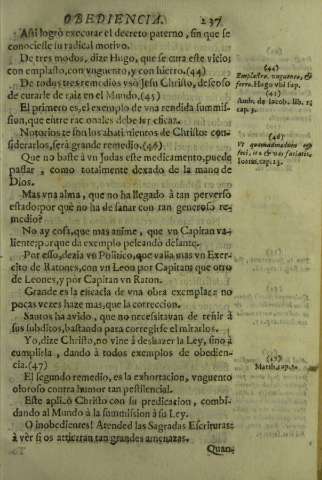 OBEDIENCIA. 237
Assi logrò executar el decreto paterno, sin que se
conociesse su radical motivo.
De tres modos, dize Hugo, que se cura este vicio:
con emplasto, con vnguento, y con hierro. (44)
De todos tres remedios vsò Jesu Christo, deseoso
de curarle de raiz en el Mundo. (45)
El primero es, el exemplo de vna rendida summis-
sion, que entre racionales debe ser eficaz.
Notorios te son los abatimientos de Christo: con-
siderarlos, serà grande remedio. (46)
Que no baste à vn Judas este medicamento, puede
passar, como totalmente dexado de la mano de
Dios.
Mas vna alma, que no ha llegado à tan perverso
estado: por què no ha de sanar con tan generoso re-
medio?
No ay cosa, que mas anime, que vn Capitan va-
liente: porque dà exemplo peleando delante.
Por esso, dezia vn Politico, que valia mas vn Exer-
cito de Ratones, con vn Leon por Capitan: que otro
de Leones, y por Capitan vn Raton.
Grande es la eficacia de vna obra exemplar: no
pocas vezes haze mas, que la correccion.
Santos ha avido, que no necessitavan de reñir à
sus subditos, bastando para corregirse el mirarlos.
Yo, dize Christo, no vine à deshazer la Ley, sino à
cumplirla, dando à todos exemplos de obedien-
cia. (47)
El segundo remedio, es la exhortacion, vnguento
oloroso contra humor tan pestilencial.
Este aplicò Christo con su predicacion, combi-
dando al Mundo à la summission à su Ley.
O inobedientes! Attended las Sagradas Escrituras:
à vèr si os atierran tan grandes amenazas.
Quan-
(44)
Emplastro, vnguento, &
ferro. Hugo vbi sup.
(45)
Ambr. de Iacob. lib. 1.
cap. 3.
(46)
Vt quemadmodum ego
feci, ita & vos faciatis.
Ioann. cap. 13.
(47)
Matth. cap. 5.